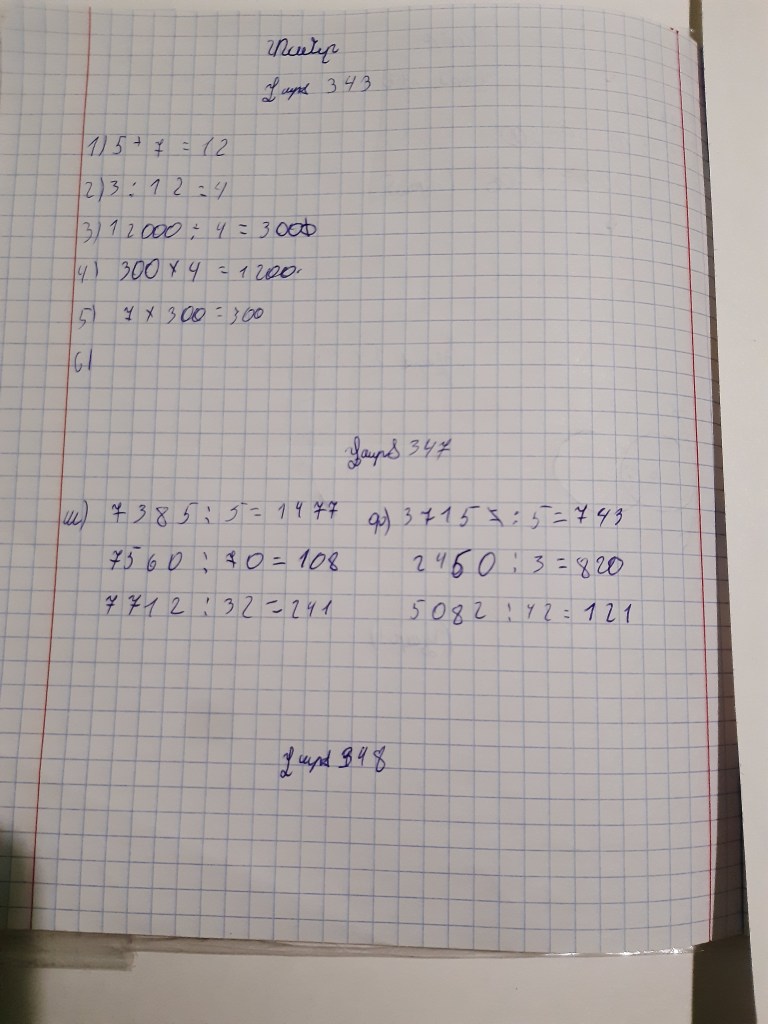 343
1) 5 + 7 = 12
2) 3 : 12 = 4
3) 12000 ÷ 4 = 3000
4) 300 × 4 = 1200.
5) 7 × 300 = 300
6)
347
ա) 7385 : 5 = 1477 բ) 3715 : 5 = 743
7560 : 70 = 108 2460 : 3 = 820
7712 : 32 = 241 5082 : 42 = 121
348